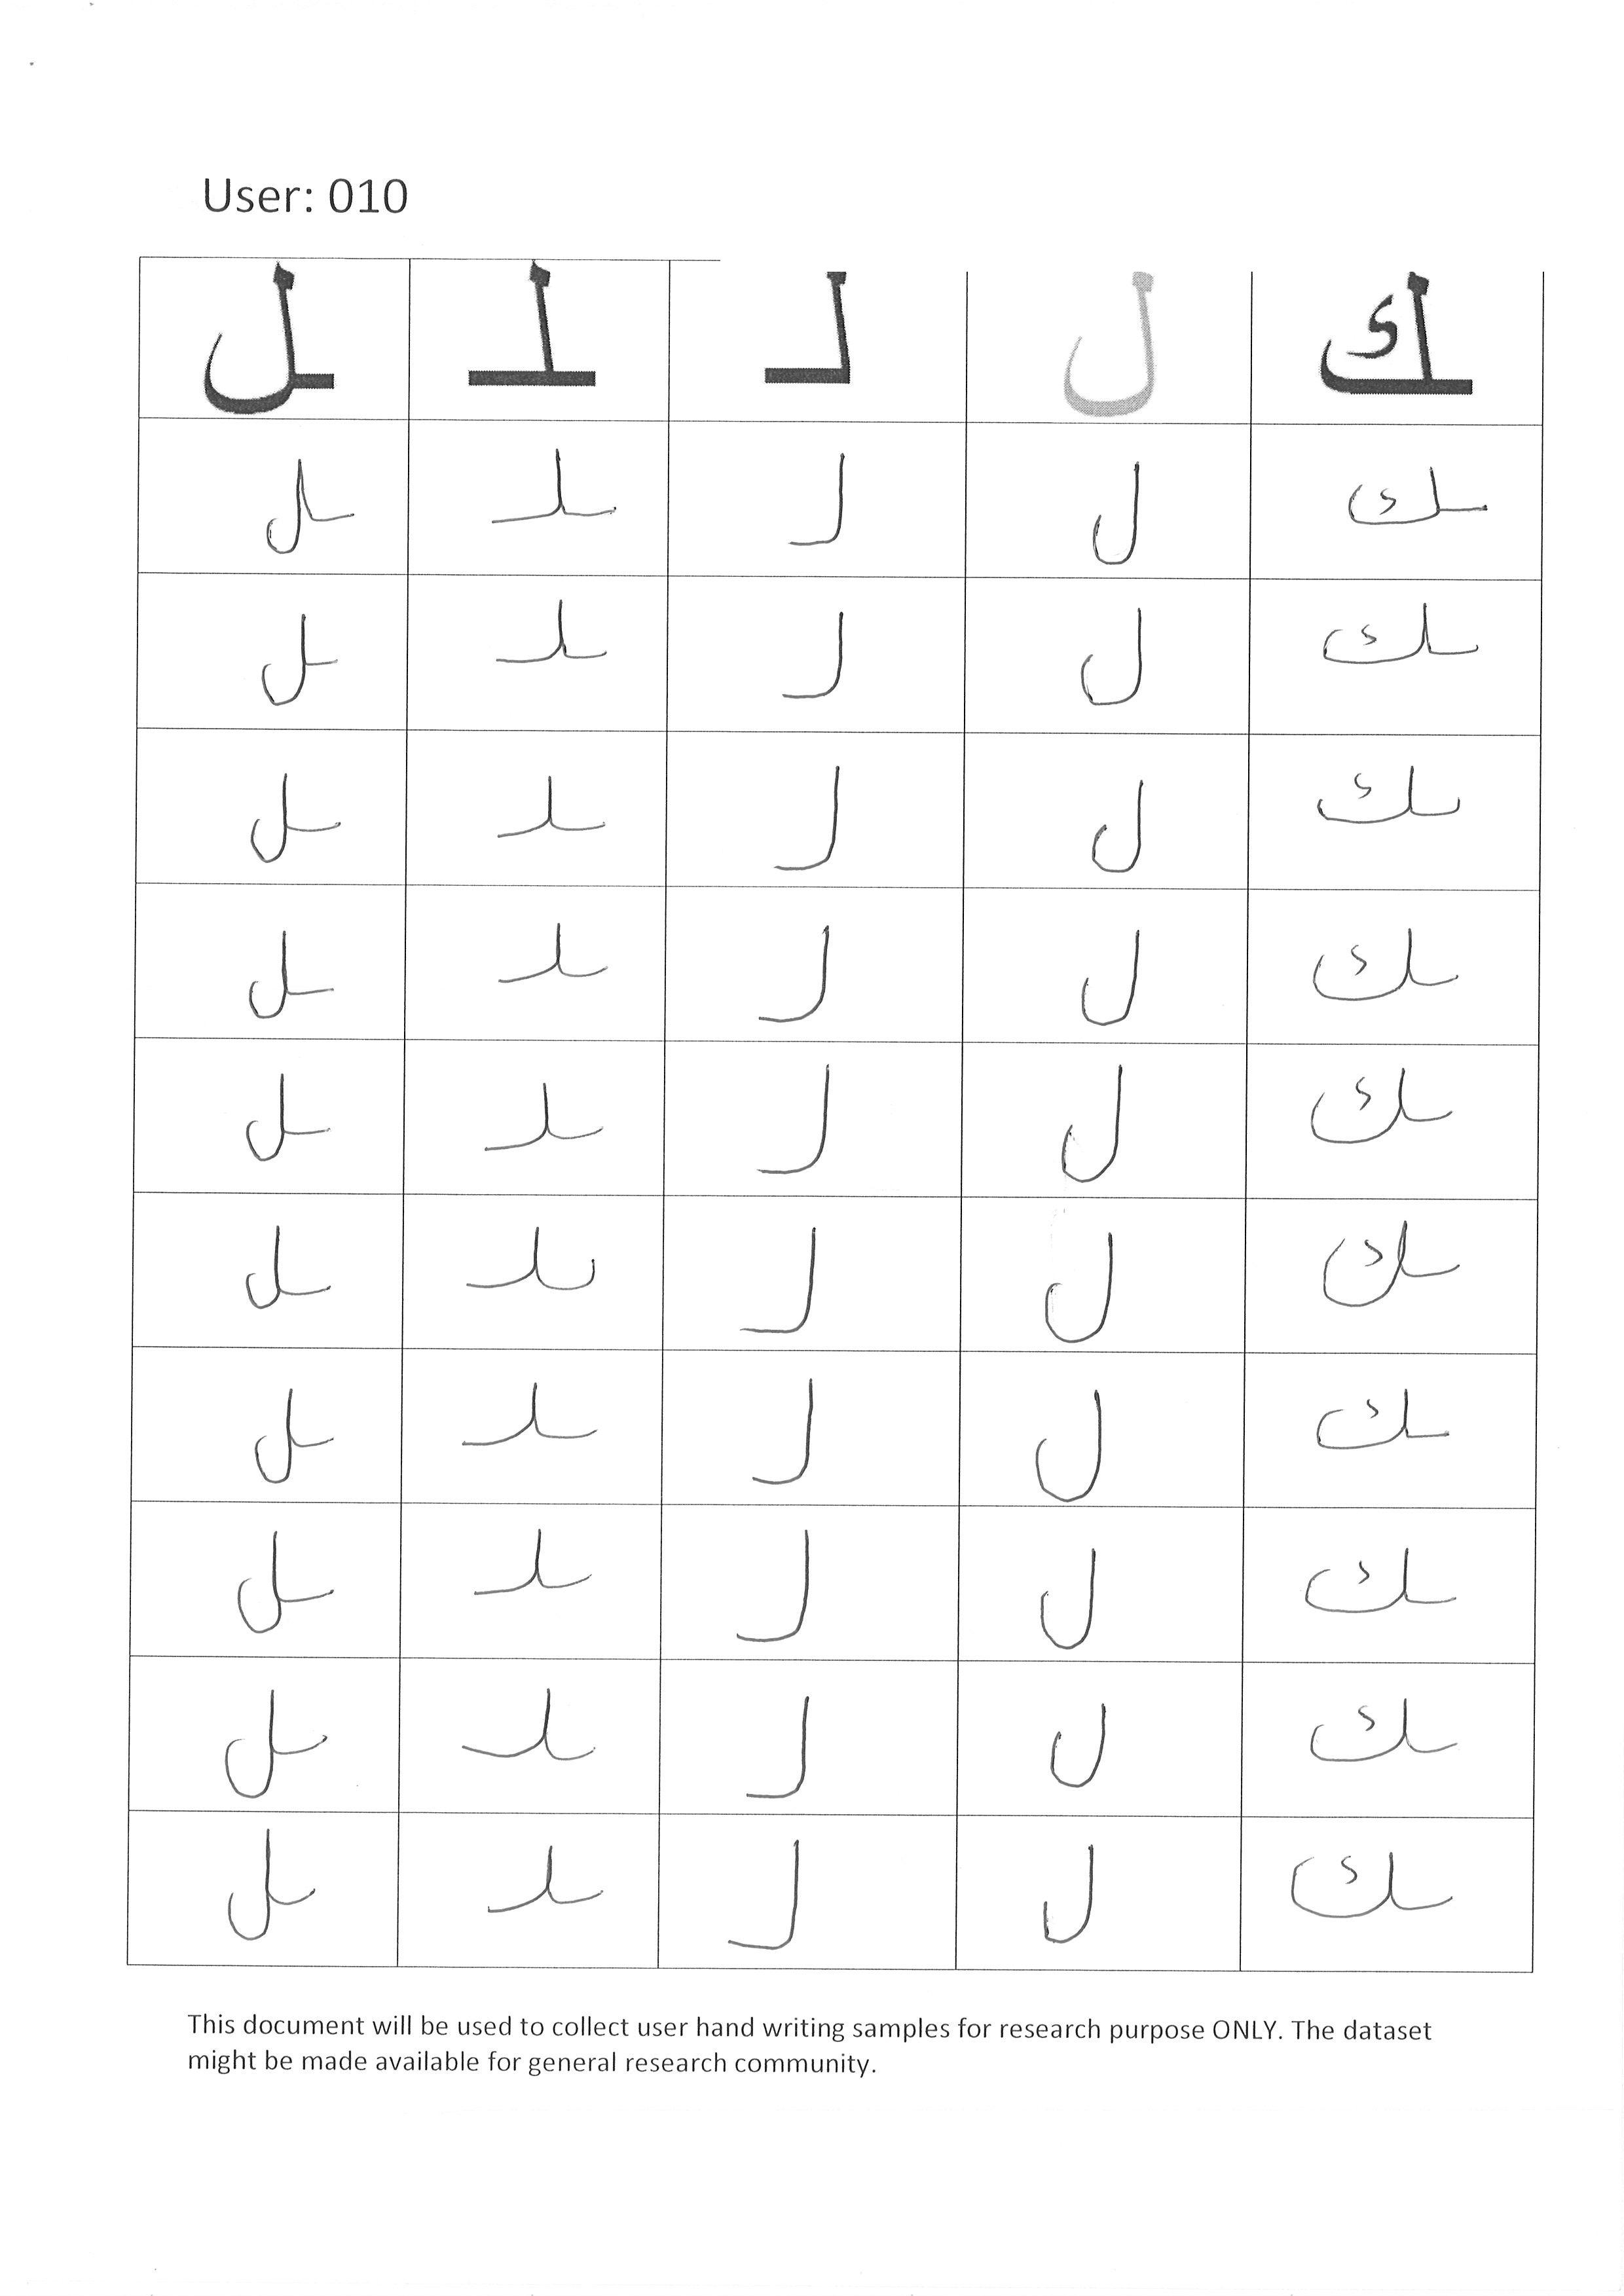 User: 010
ك ل لـ ـلـ ـل
ـك ل لـ ـلـ ـل
ـك ل لـ ـلـ ـل
ـك ل لـ ـلـ ـل
ـك ل لـ ـلـ ـل
ـك ل لـ ـلـ ـل
ـك ل لـ ـلـ ـل
ـك ل لـ ـلـ ـل
ـك ل لـ ـلـ ـل
ـك ل لـ ـلـ ـل
ـك ل لـ ـلـ ـل
This document will be used to collect user hand writing samples for research purpose ONLY. The dataset
might be made available for general research community.